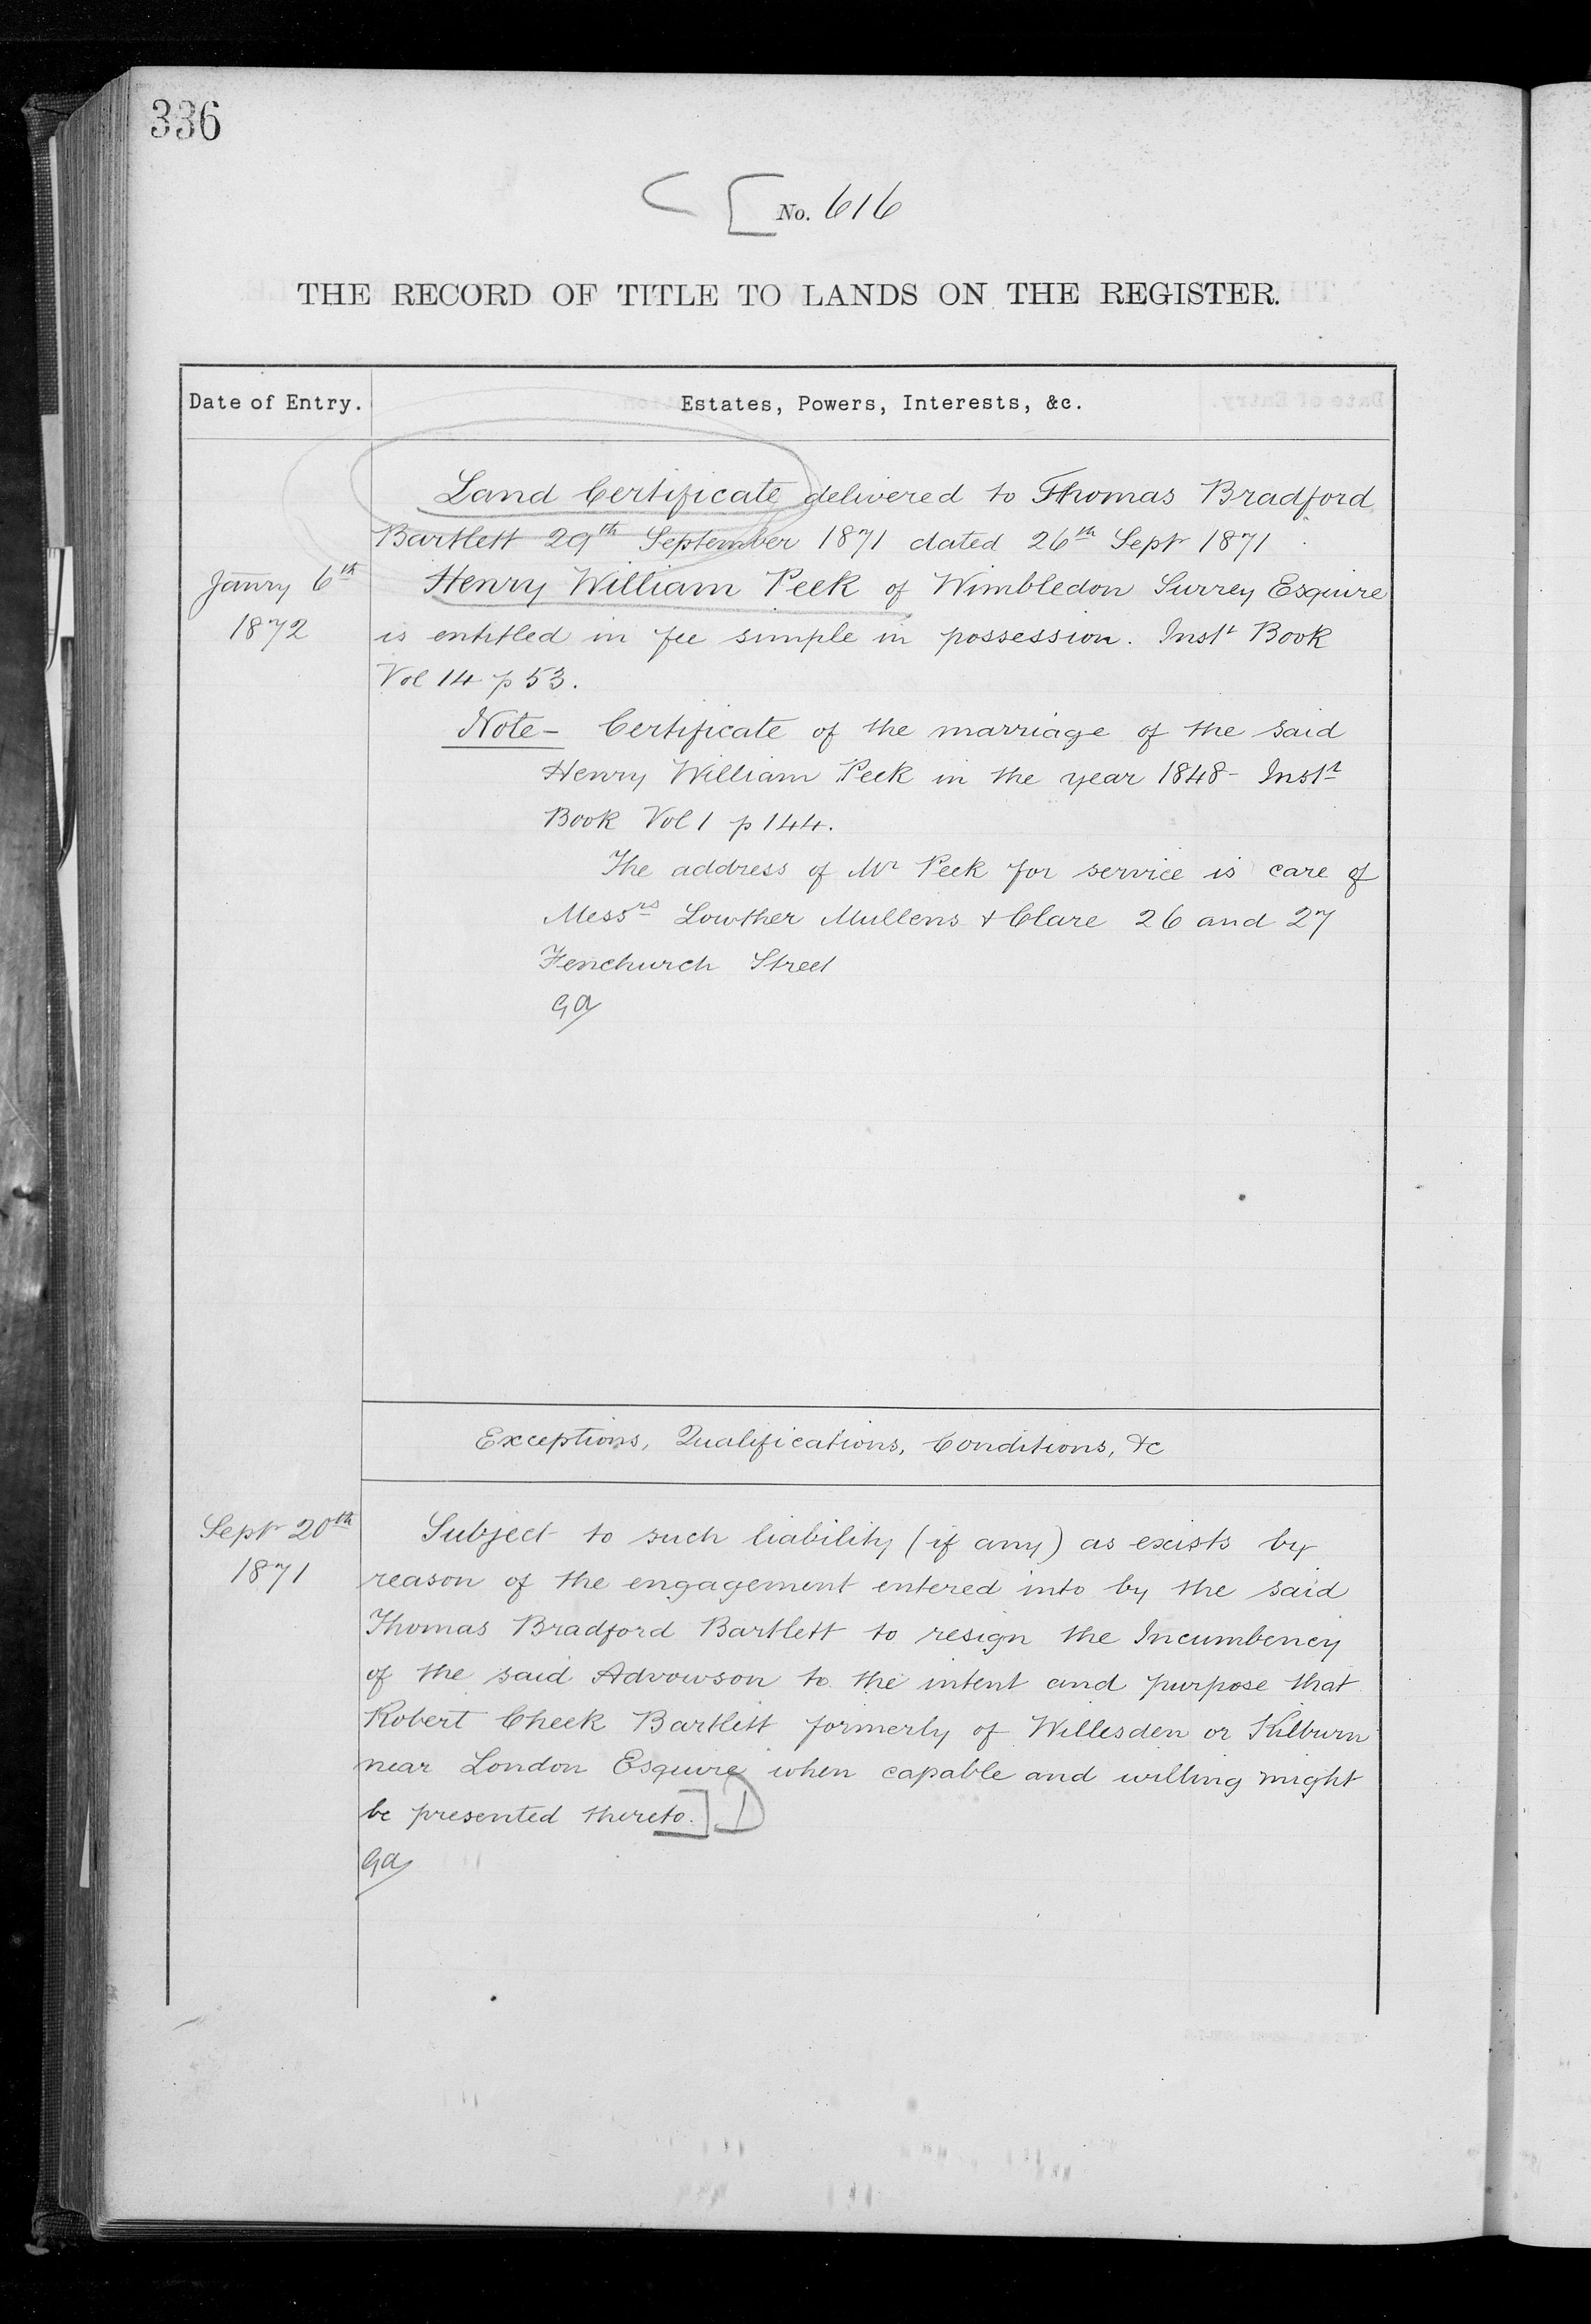 336
No. 616
THE RECORD OF TITLE TO LANDS ON THE REGISTER.
Date of Entry.
Estates, Powers, Interests, &c.
Land Certificate delivered to Thomas Bradford
Bartlett 29th September 1871 dated 26th Sept 1871
Janry 6th
1872
Henry William Peek of Wimbledon Surrey Esquire
is entitled in fee simple in possession. Inst Book
Vol 14 p 53.
Note - Certificate of the marriage of the said
Henry William Peek in the year 1848 - Inst
Book Vol 1 p 144.
The address of Mr Peek for service is care of
Messrs Lowther Mullens & Clare 26 and 27
Fenchurch Street
GA
Exceptions, Qualifications, Conditions, &c
Sept 20th
1871
Subject to such liability (if any) as exists by
reason of the engagement entered into by the said
Thomas Bradford Bartlett to resign the Incumbency
of the said Advowson to the intent and purpose that
Robert Cheek Bartlett formerly of Willesden or Kilburn
near London Esquire when capable and willing might
be presented thereto.
GA